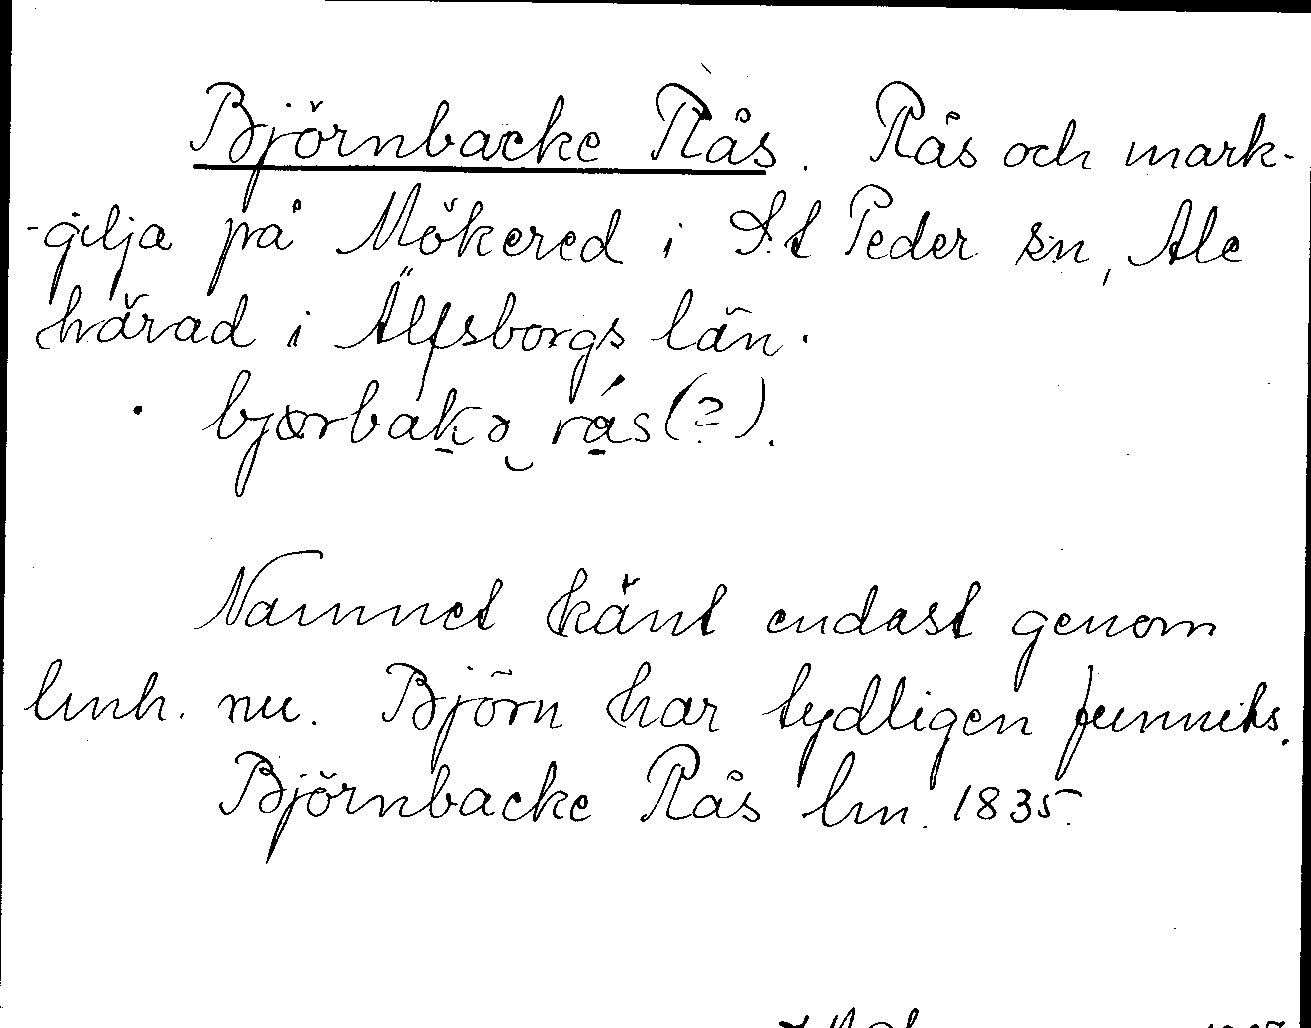 Björnbacke Rås. Rås och mark-
-gilja på Mökered i S:t Peder sn, Ale
härad i Älfsborgs län.
bjærbakə rás (?).
Namnet känt endast genom
lmh. nu. Björn har tydligen funnits.
Björnbacke Rås lm. 1835.